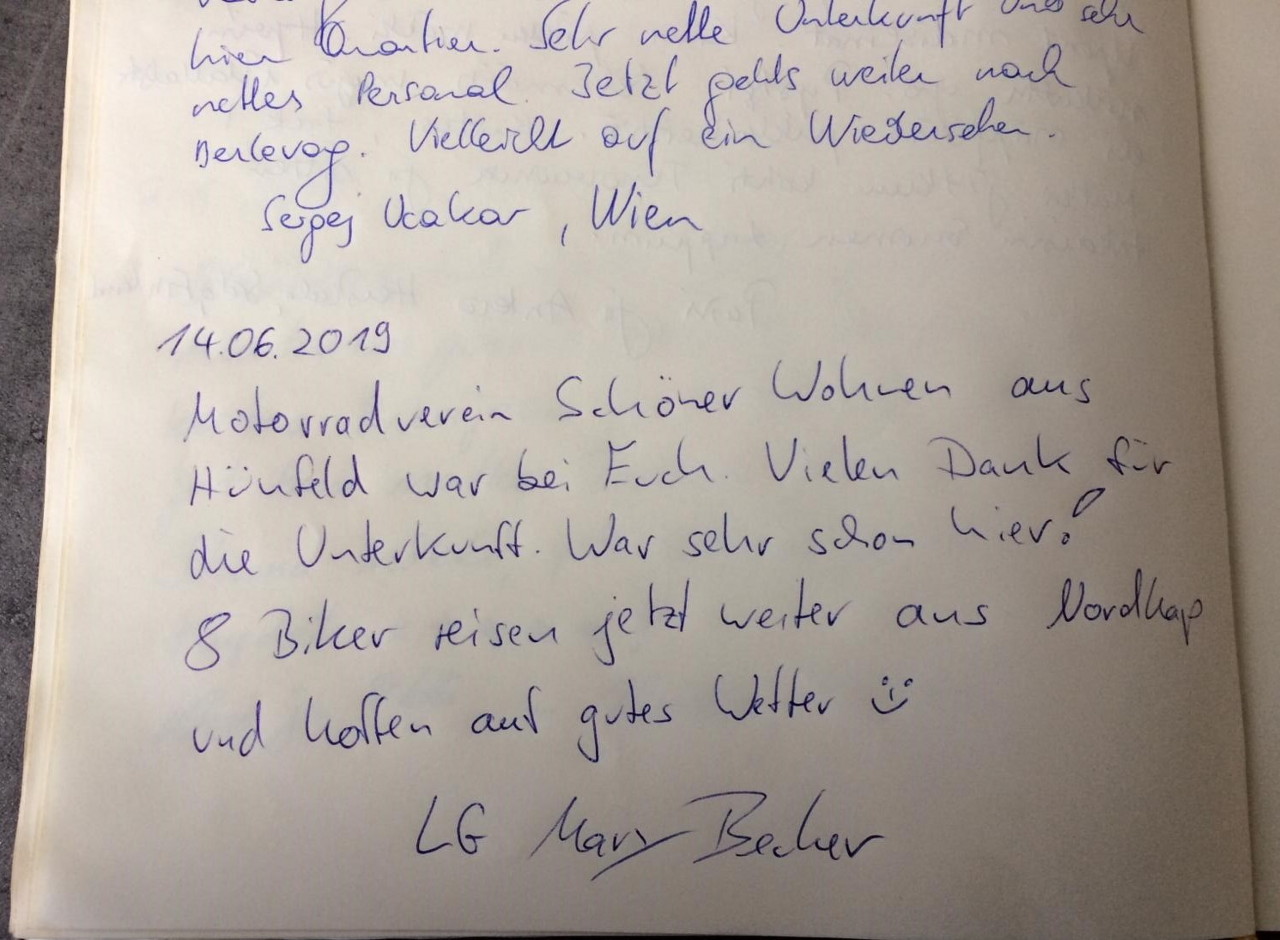 hier Quartier. Sehr nette Unterkunft und sehr
nettes Personal. Jetzt gehts weiter nach
Berlevag. Vielleicht auf ein Wiedersehen.
Sergej Ucakar, Wien
14.06.2019
Motorradverein Schöner Wohnen aus
Hünfeld war bei Euch. Vielen Dank für
die Unterkunft. War sehr schön hier!
8 Biker reisen jetzt weiter ans Nordkap
und hoffen auf gutes Wetter :)
LG Mary Becker